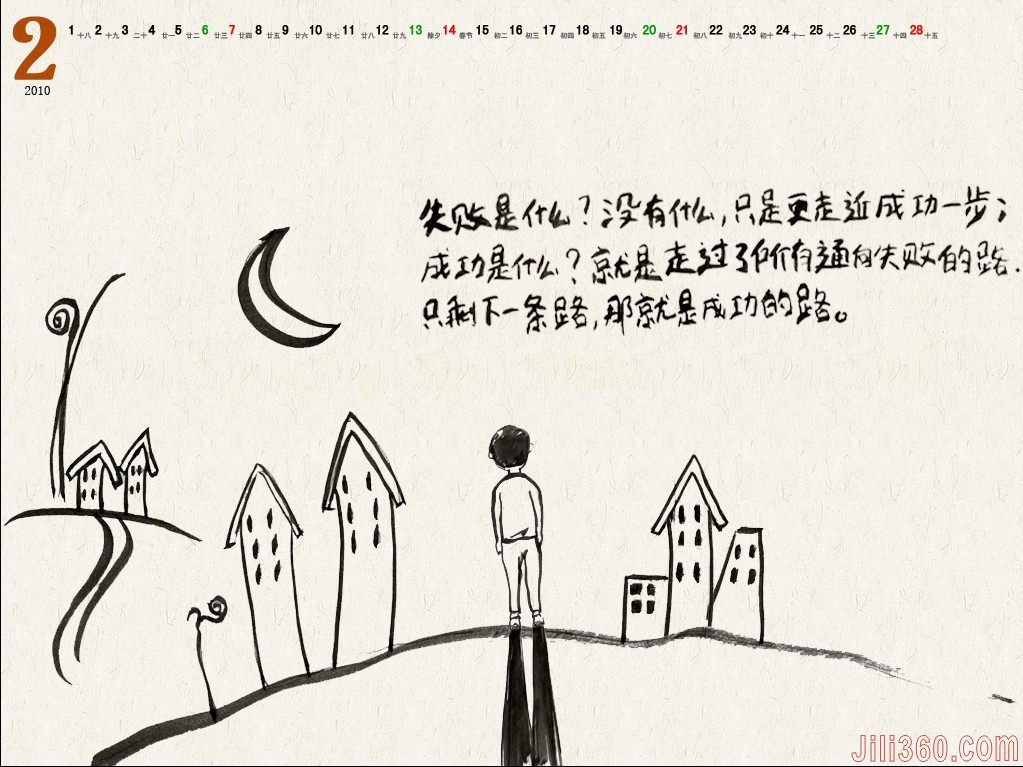 2
2010
1 十八 2 十九 3 二十 4 廿一 5 廿二 6 廿三 7 廿四 8 廿五 9 廿六 10 廿七 11 廿八 12 廿九 13 除夕 14 春节 15 初二 16 初三 17 初四 18 初五 19 初六 20 初七 21 初八 22 初九 23 初十 24 十一 25 十二 26 十三 27 十四 28 十五
失败是什么？没有什么，只是更走近成功一步；
成功是什么？就是走过了所有通向失败的路.
只剩下一条路，那就是成功的路。
Jili360.com